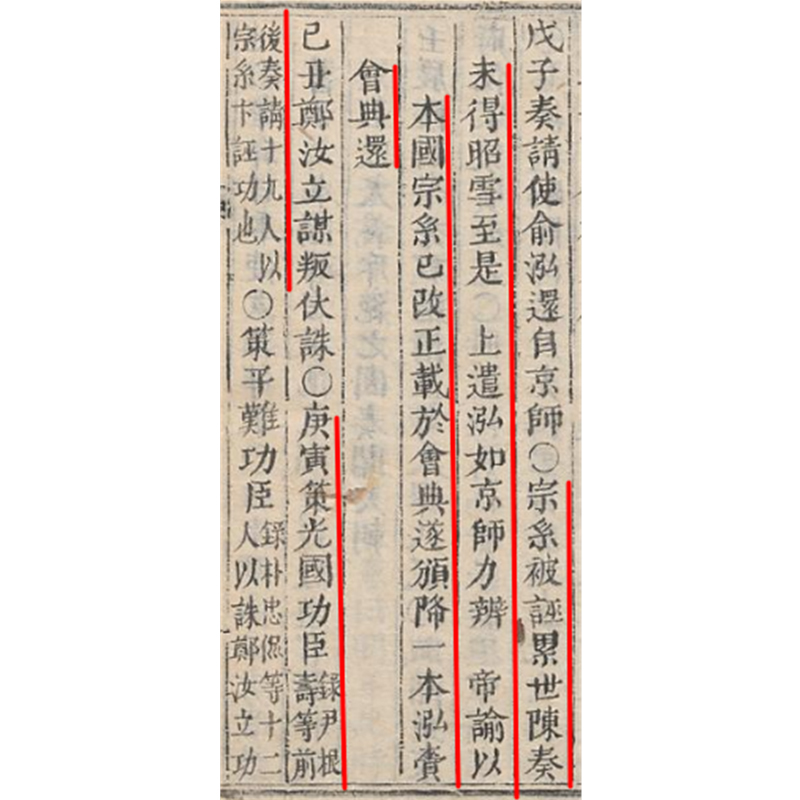 戊子奏請使俞泓還自京師〇宗系被誣累世陳奏
未得昭雪至是〇上遣泓如京師力辨 帝諭以
本國宗系已改正載於會典遂頒降一本泓賫
會典還
己丑鄭汝立謀叛伏誅〇庚寅策光國功臣錄尹根壽等前
後奏請十九人以宗系卞誣功也〇策平難功臣錄朴忠侃等十二人以誅鄭汝立功